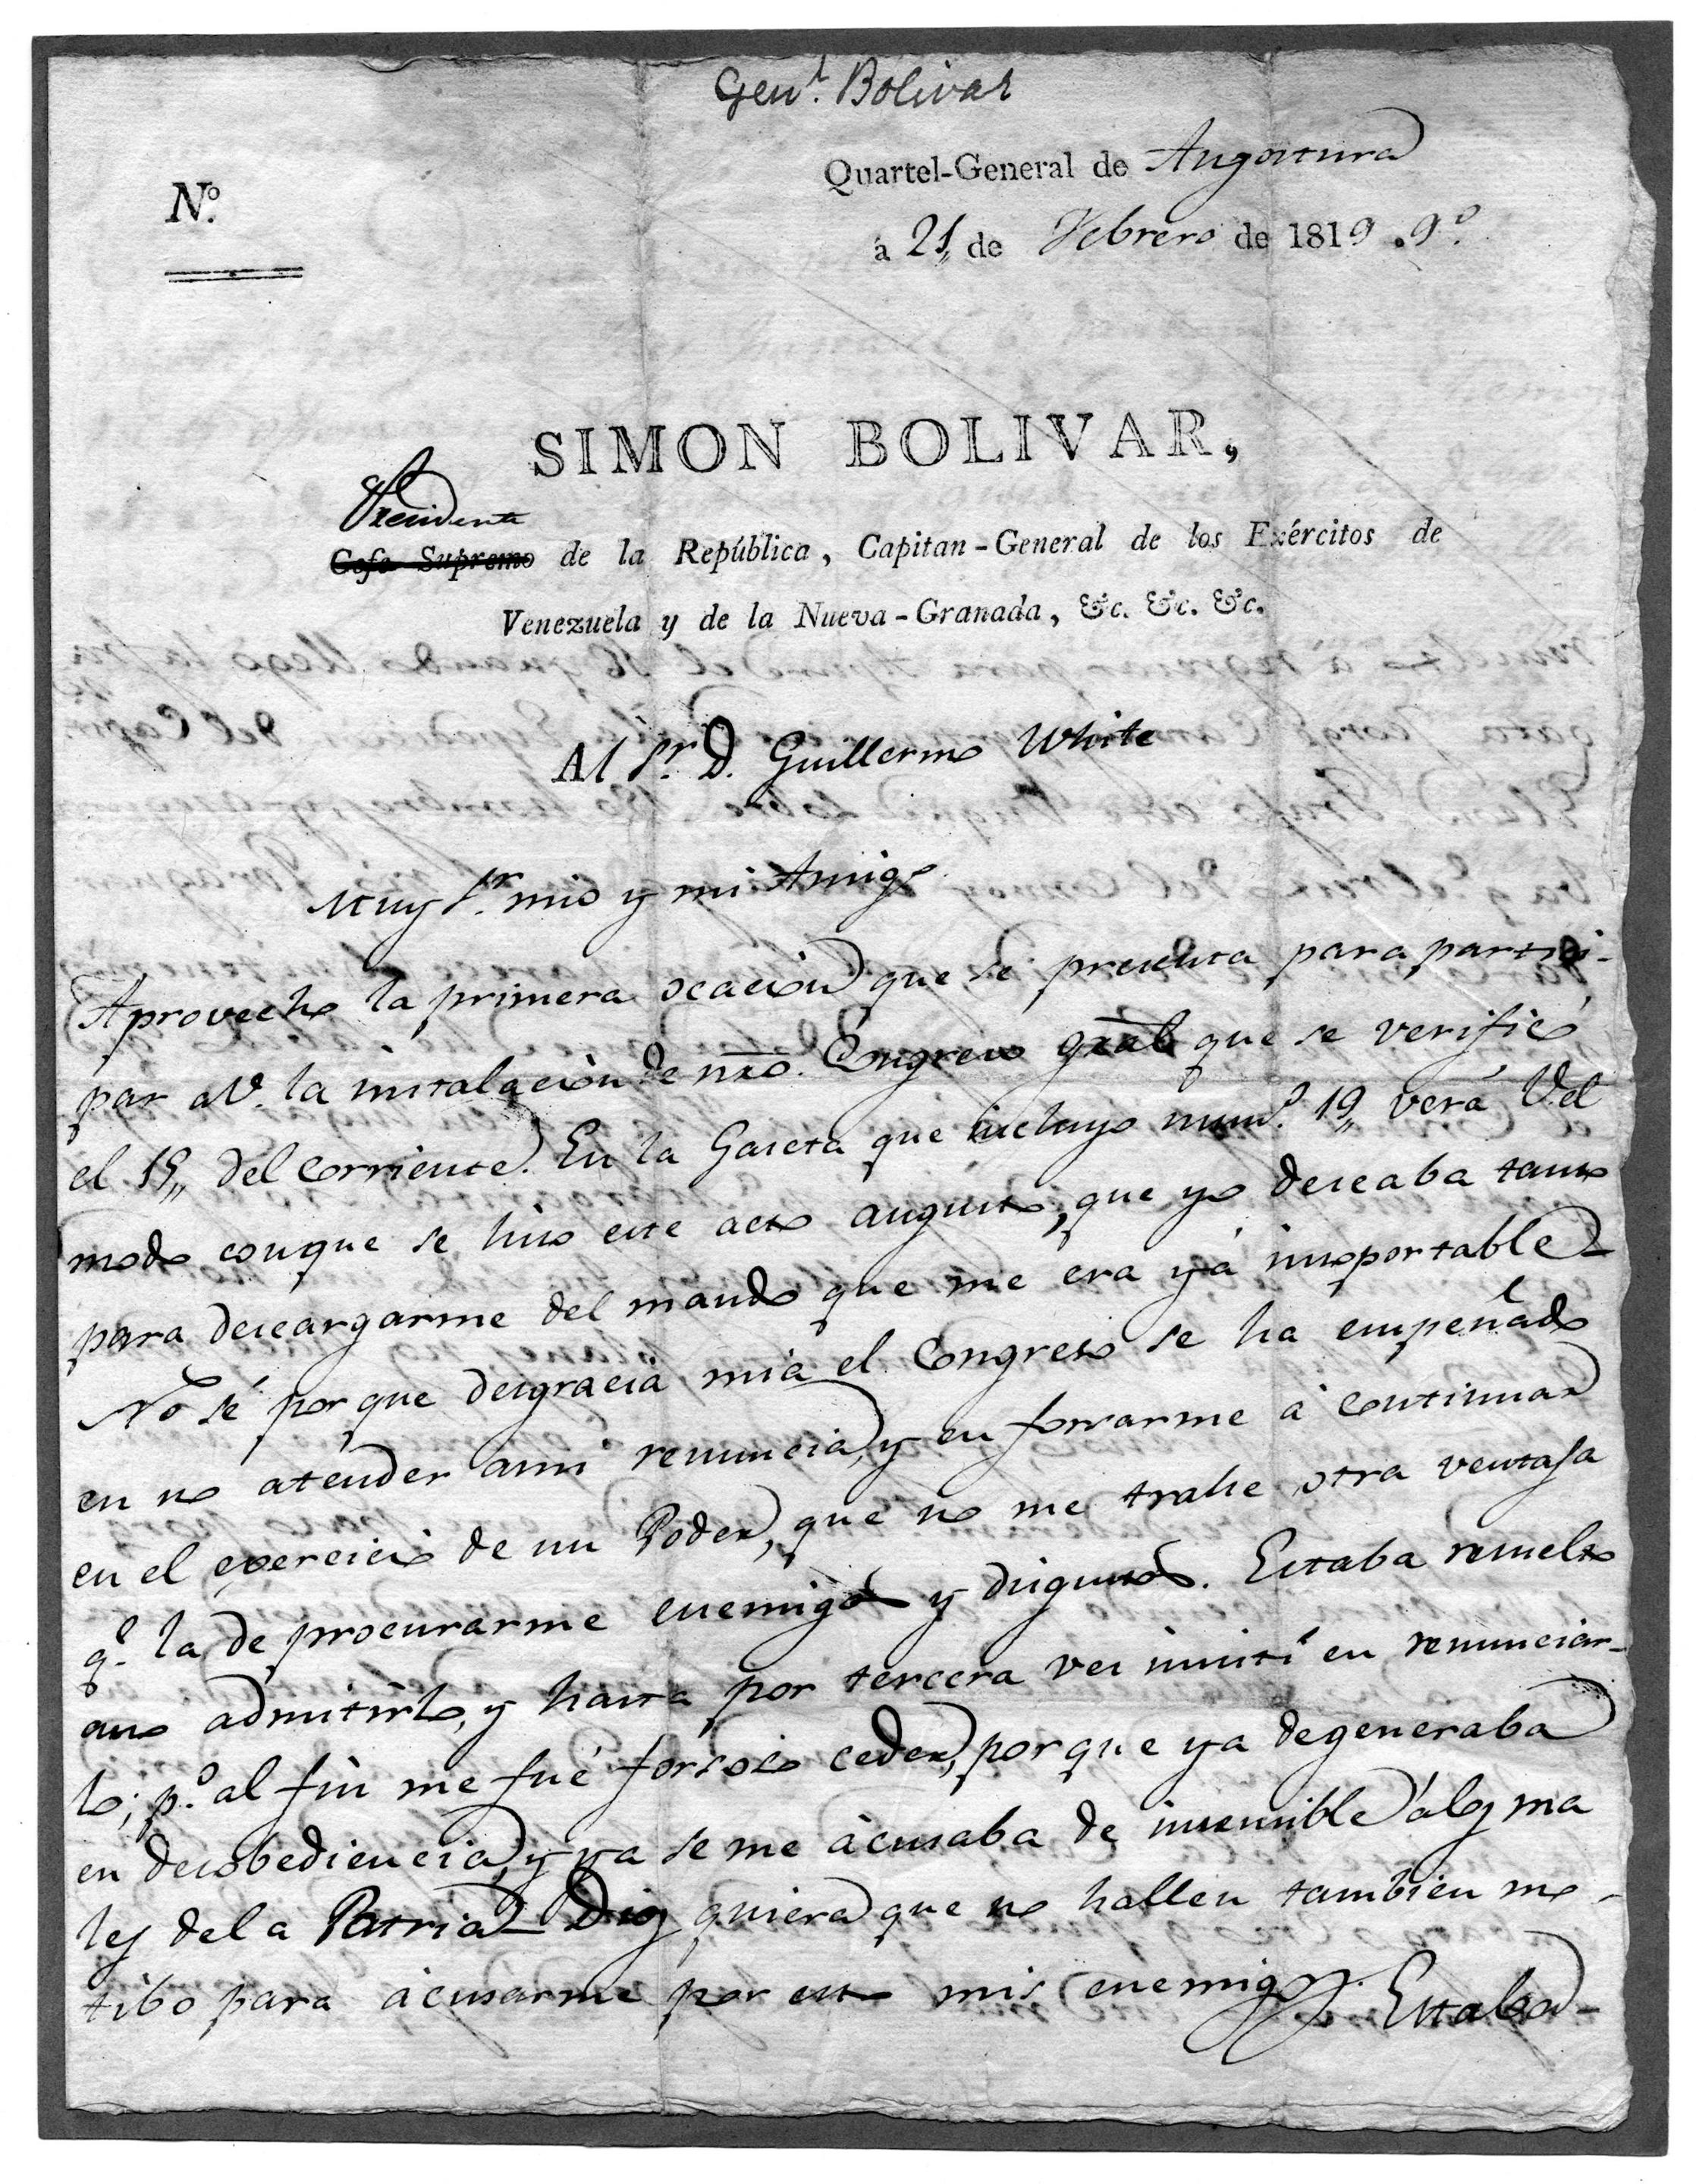 Genl. Bolivar
Quartel-General de Angostura
Nº.
à 21,, de Febrero de 1819. 9º.
SIMON BOLIVAR,
Presidente
Gefe Supremo de la República, Capitan-General de los Exércitos de
Venezuela y de la Nueva-Granada, &c. &c. &c.
Al Sr. D. Guillermo White
Muy Sr. mio y mi Amigo.
Aprovecho la primera ocacion que se presenta para partici-
par a V. la instalacion de nro. Congreso gral que se verificó
el 15,, del corriente. En la Gaseta que incluyo numo. 19,, verá V. el
modo conque se hiso este acto augusto, que yo deseaba tanto
para descargarme del mando que me era yá insoportable-
No sé porque desgracia mia el Congreso se ha empeñado
en no atender ami renuncia, y en forsarme à continuar
en el exercicio de un Poder, que no me trahe otra ventaja
qe. la de procurarme enemigos y disgustos. Estaba resuelto
ano admitirlo, y hasta por tercera ves insistí en renunciar-
lo; po. al fin me fué forsoso ceder, porque ya degeneraba
en desobediencia, y ya se me àcusaba de insensible álos ma
les dela Patria- Dios quiera que no hallen tambien mo-
tibo para àcusarme por esto mis enemigos. Estaba-